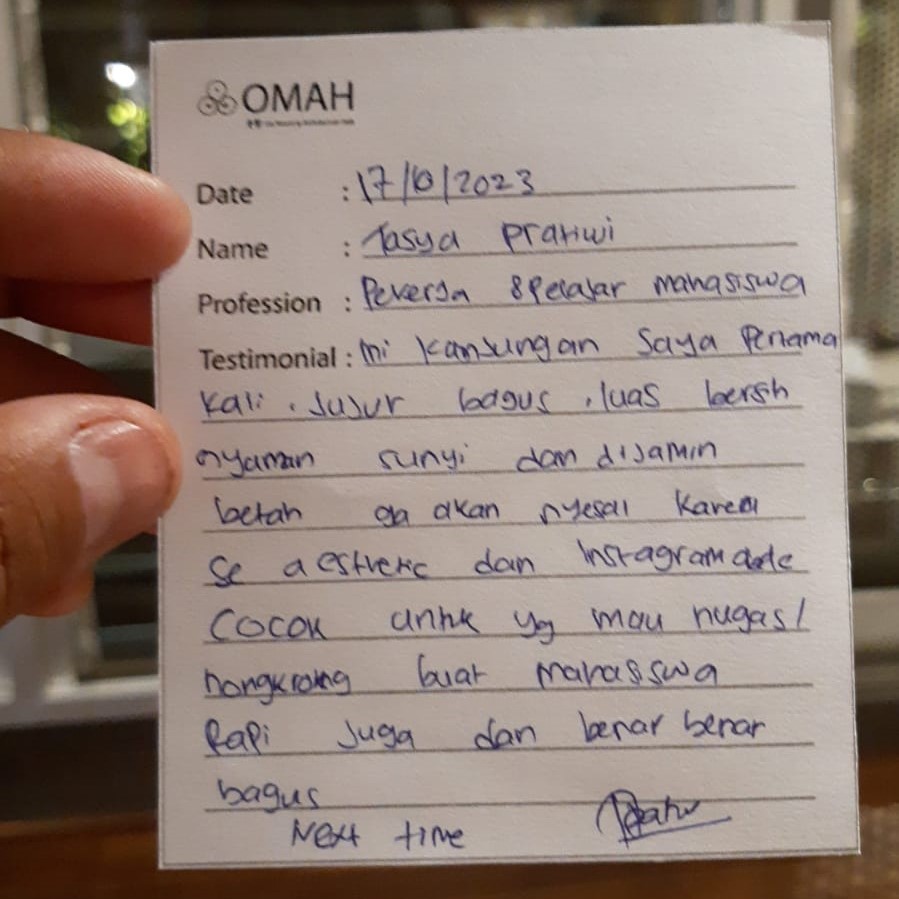 OMAH
Date : 17/10/2023
Name : Tasya Pratiwi
Profession : Pekerja & Pelajar mahasiswa
Testimonial : Ini kunjungan saya Pertama
kali . Jujur bagus , luas bersih
nyaman sunyi dan dijamin
betah ga akan nyesal karena
se aesthetic dan instagramable
Cocok untuk yg mau nugas/
nongkrong buat mahasiswa
Rapi juga dan benar benar
bagus
Next time